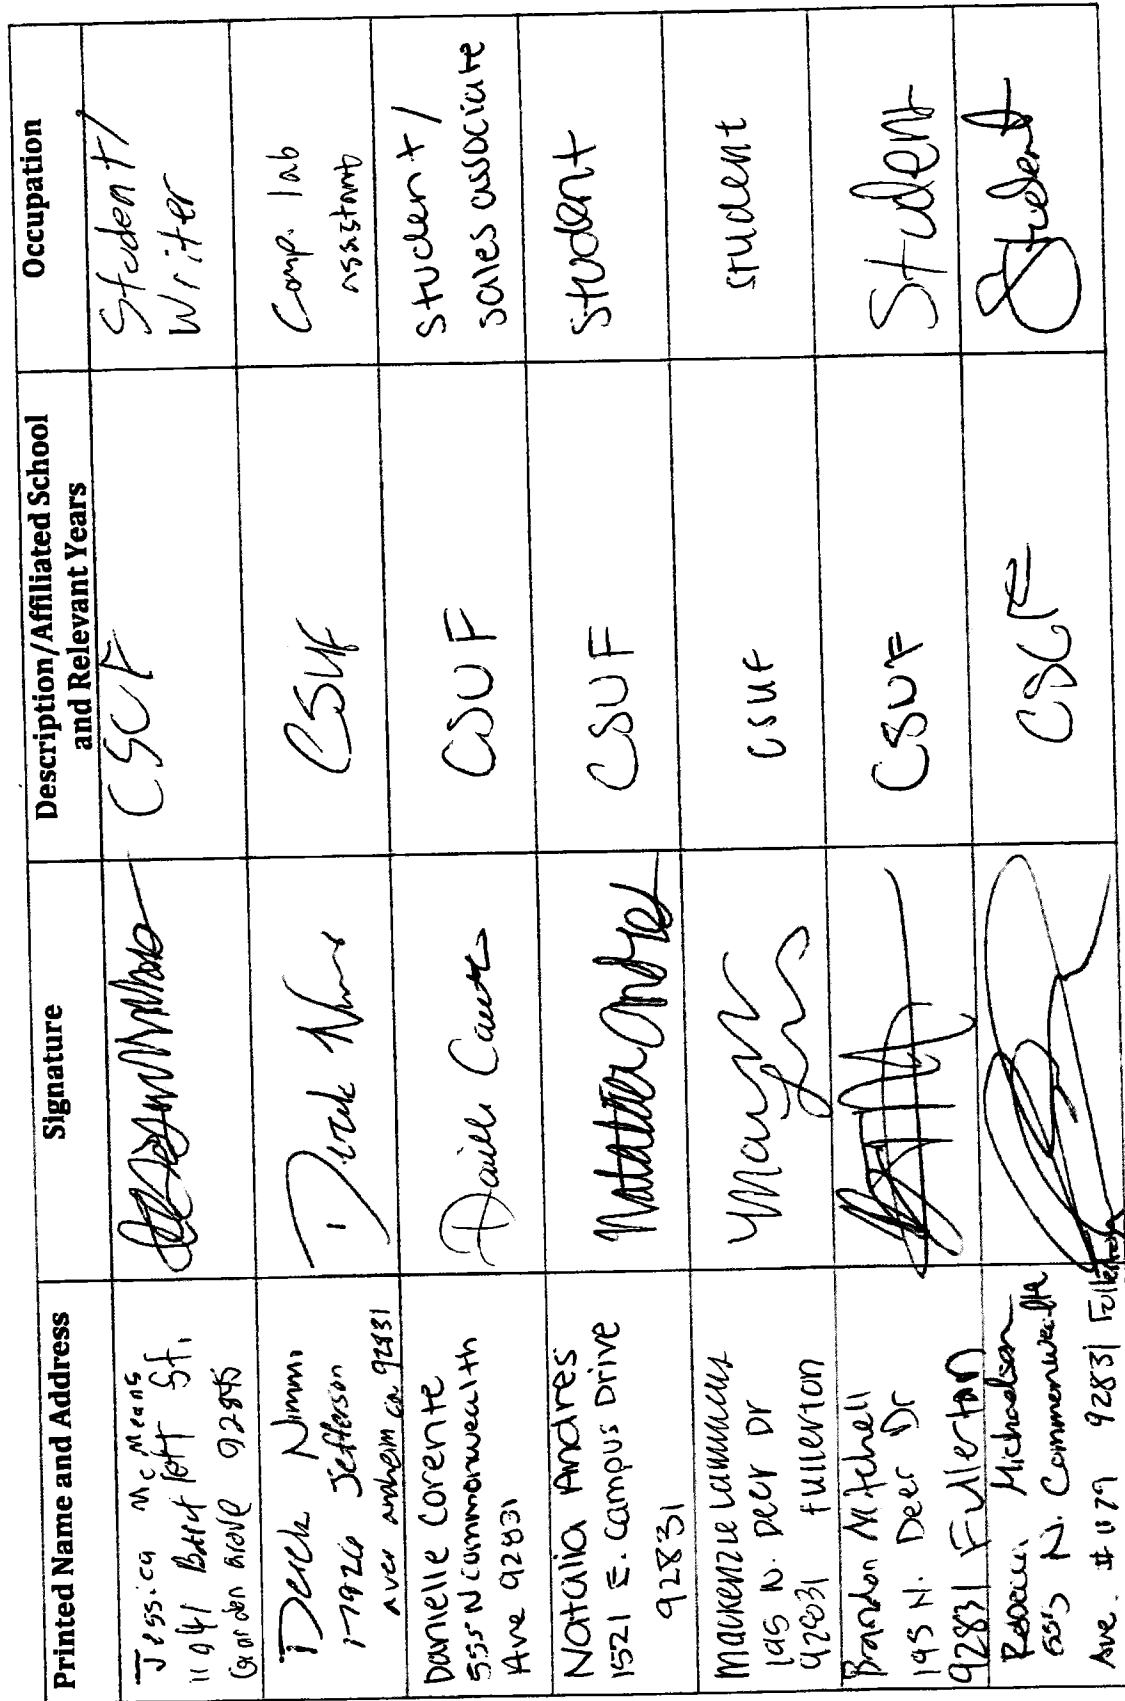 Printed Name and Address
Signature
Description/Affiliated School
and Relevant Years
Occupation
Jessica McMeans
St.
Garden Grove 92845
CSUF
Student/
Writer
Derek
Jefferson
anheim ca 92831
CSUF
Comp. lab
assistant
Danielle Corente
555 N Commonwealth
Ave 92831
CSUF
Student/
sales associate
Natalia Andres
1521 E. Campus Drive
92831
Natalia Andres
CSUF
Student
Mackenzie
195 N. Deer Dr
92831 Fullerton
CSUF
student
Brandon Mitchell
195 N. Deer Dr
92831 Fullerton
CSUF
Student
Michaelson
555 N. Commonwealth
Ave. 92831 Fullerton
CSUF
Student